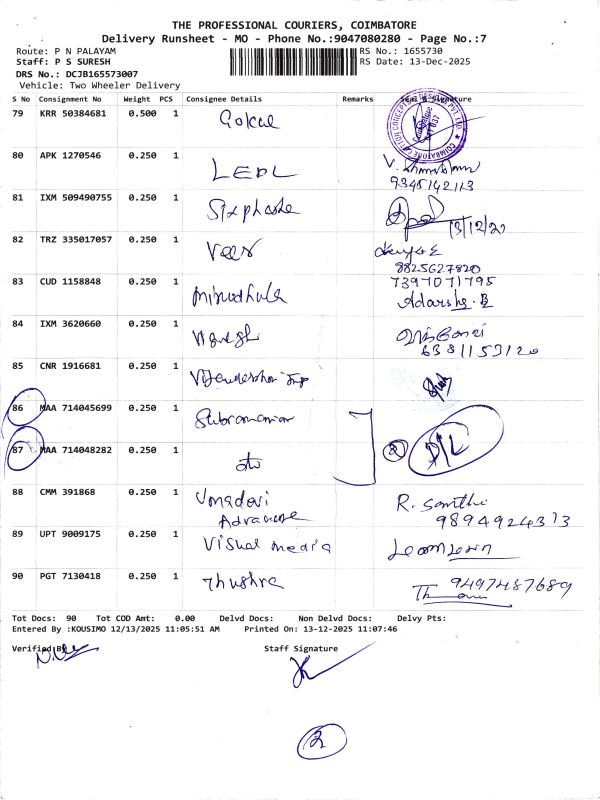 THE PROFESSIONAL COURIERS, COIMBATORE
Delivery Runsheet - MO - Phone No.:9047080280 - Page No.:7
Route: P N PALAYAM
RS No.: 1655730
Staff: P S SURESH
RS Date: 13-Dec-2025
DRS No.: DCJB165573007
Vehicle: Two Wheeler Delivery
S No Consignment No Weight PCS Consignee Details Remarks Seal & Signature
79 KRR 50384681 0.500 1 Gokul
80 APK 1270546 0.250 1 LEDL
9345142113
81 IXM 509490755 0.250 1
82 TRZ 335017057 0.250 1 Veer
8825627820
83 CUD 1158848 0.250 1
7397071795
Adarsh. B
84 IXM 3620660 0.250 1 Vignesh
6381153120
85 CNR 1916681 0.250 1
86 MAA 714045699 0.250 1 Subramanian
② D/L
87 MAA 714048282 0.250 1
88 CMM 391868 0.250 1 Umadevi
Advance
R. Samithi
9894924373
89 UPT 9009175 0.250 1 Visual media
90 PGT 7130418 0.250 1 Thushra
9497487689
Tot Docs: 90 Tot COD Amt: 0.00 Delvd Docs: Non Delvd Docs: Delvy Pts:
Entered By :KOUSIMO 12/13/2025 11:05:51 AM Printed On: 13-12-2025 11:07:46
Verified By
Staff Signature
2